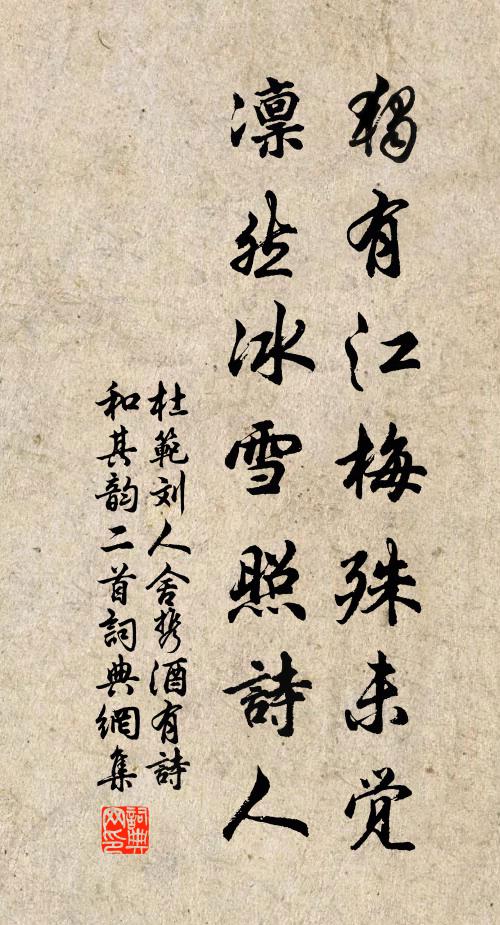 獨有江梅殊未覚
凛然冰雪照詩人
杜範刘人舍携酒有詩
和其韵二首詞典網集
詞典网印